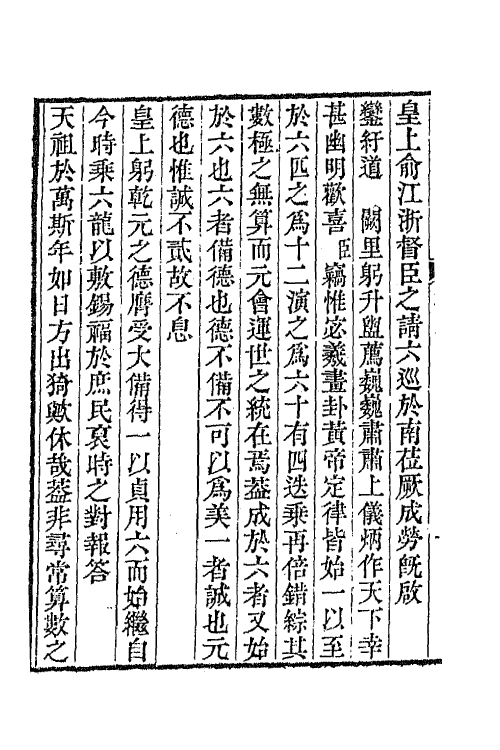 皇上俞江浙督臣之請六巡於南莅厥成勞旣啟
鑾紆道　闕里躬升盥薦巍巍肅肅上儀炳作天下幸
甚幽明歡喜臣竊惟宓羲畫卦黃帝定律皆始一以至
於六匹之爲十二演之爲六十有四迭乘再倍錯綜其
數極之無算而元會運世之統在焉葢成於六者又始
於六也六者備德也德不備不可以爲美一者誠也元
德也惟誠不貳故不息
皇上躬乾元之德膺受大備得一以貞用六而始繼自
今時乘六龍以敷錫福於庶民裒時之對報荅
天祖於萬斯年如日方出猗歟休哉葢非尋常算數之